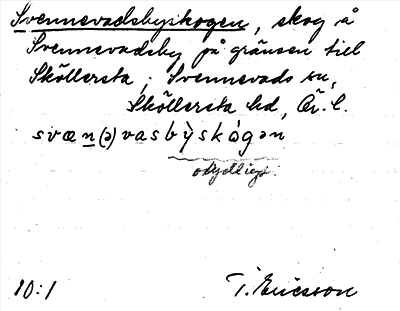 Svennevadsbyskogen, skog å
Svennevadsby på gränsen till
Sköllersta, Svennevads sn,
Sköllersta hd, Ör. l.
svæn(ə)vasbỳskógən
otydligt.
10:1 T. Ericsson